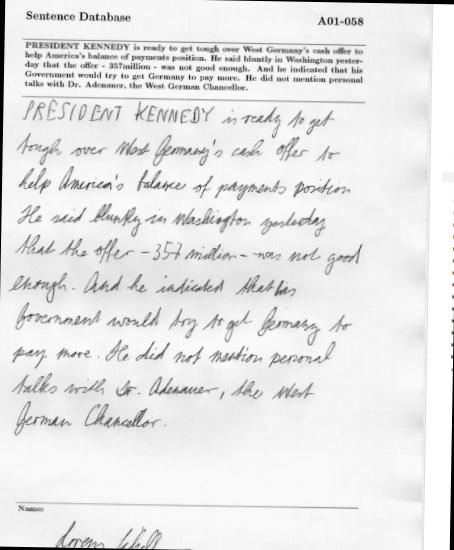 Sentence Database A01-058
PRESIDENT KENNEDY is ready to get tough over West Germany's cash offer to
help America's balance of payments position. He said bluntly in Washington yester-
day that the offer - 357million - was not good enough. And he indicated that his
Government would try to get Germany to pay more. He did not mention personal
talks with Dr. Adenauer, the West German Chancellor.
PRESIDENT KENNEDY is ready to get
tough over West Germany's cash offer to
help America's balance of payments position
He said bluntly in Washington yesterday
that the offer - 357 million - was not good
enough. And he indicated that his
Government would try to get Germany to
pay more. He did not mention personal
talks with Dr. Adenauer, the West
German Chancellor.
Name: